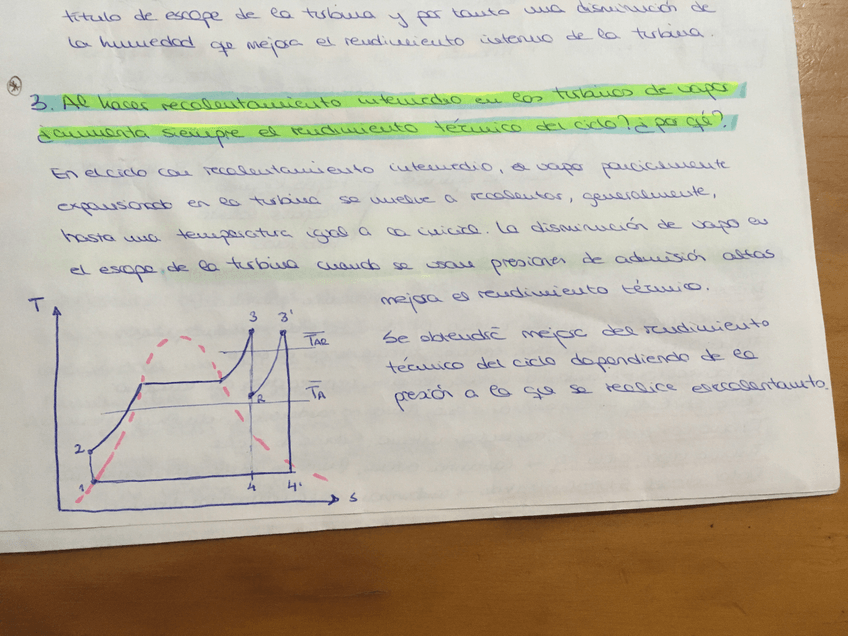 título de escape de la turbina y por tanto una disminución de
la humedad que mejora el rendimiento interno de la turbina.
3. Al hacer recalentamiento intermedio en las turbinas de vapor
¿aumenta siempre el rendimiento térmico del ciclo? ¿por qé?
En el ciclo con recalentamiento intermedio, el vapor parcialmente
expansionado en la turbina se vuelve a recalentar, generalmente,
hasta una temperatura igual a la inicial. La disminución de vapor en
el escape de la turbina cuando se usan presiones de admisión altas
mejora el rendimiento térmico.
Se obtendrá mejora del rendimiento
térmico del ciclo dependiendo de la
presión a la que se realice
T
3 3'
TAR
TA
R
2
1
4 4'
s